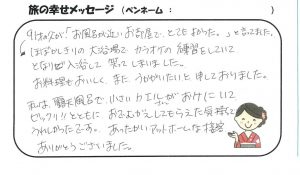 旅の幸せメッセージ（ペンネーム：　　　　）
91才の父が「お風呂が近いお部屋で、とてもよかった。」と言ってました。
大浴場で カラオケの 練習をしていて
となりで入浴して 笑ってしまいました。
お料理もおいしく、また うかがいたいと 申しておりました。
私は、露天風呂で、小さい カエルが おけにいて
ビックリ!!とともに、おでむかえしてもらえた気持で
うれしかったです。あったかいアットホームな接客
ありがとうございました。